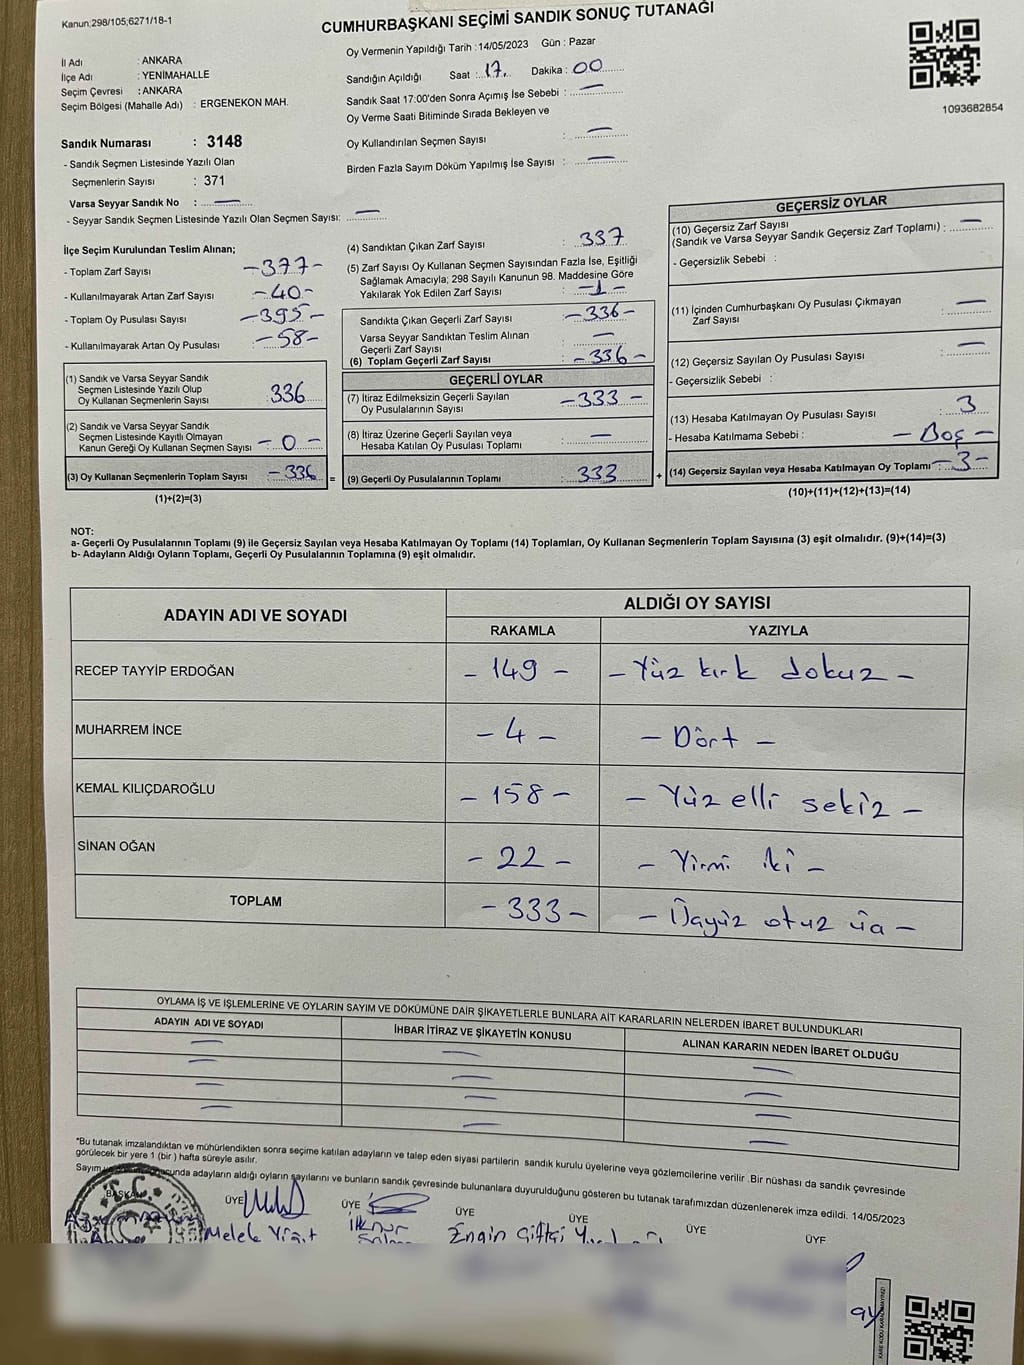 Kanun;298/105;6271/18-1
CUMHURBAŞKANI SEÇİMİ SANDIK SONUÇ TUTANAĞI
İl Adı : ANKARA
İlçe Adı : YENİMAHALLE
Seçim Çevresi : ANKARA
Seçim Bölgesi (Mahalle Adı) : ERGENEKON MAH.
Oy Vermenin Yapıldığı Tarih :14/05/2023 Gün : Pazar
Sandığın Açıldığı Saat : 17. Dakika : 00
Sandık Saat 17:00'den Sonra Açımış İse Sebebi : —
Oy Verme Saati Bitiminde Sırada Bekleyen ve
Oy Kullandırılan Seçmen Sayısı : —
Birden Fazla Sayım Döküm Yapılmış İse Sayısı : —
1093682854
Sandık Numarası : 3148
- Sandık Seçmen Listesinde Yazılı Olan
Seçmenlerin Sayısı : 371
Varsa Seyyar Sandık No : —
- Seyyar Sandık Seçmen Listesinde Yazılı Olan Seçmen Sayısı: —
İlçe Seçim Kurulundan Teslim Alınan;
- Toplam Zarf Sayısı -377-
- Kullanılmayarak Artan Zarf Sayısı -40-
- Toplam Oy Pusulası Sayısı -395-
- Kullanılmayarak Artan Oy Pusulası -58-
(1) Sandık ve Varsa Seyyar Sandık
Seçmen Listesinde Yazılı Olup
Oy Kullanan Seçmenlerin Sayısı : 336
(2) Sandık ve Varsa Seyyar Sandık
Seçmen Listesinde Kayıtlı Olmayan
Kanun Gereği Oy Kullanan Seçmen Sayısı - 0 -
(3) Oy Kullanan Seçmenlerin Toplam Sayısı -336
(1)+(2)=(3)
(4) Sandıktan Çıkan Zarf Sayısı : 337
(5) Zarf Sayısı Oy Kullanan Seçmen Sayısından Fazla İse, Eşitliği
Sağlamak Amacıyla; 298 Sayılı Kanunun 98. Maddesine Göre
Yakılarak Yok Edilen Zarf Sayısı : -1-
Sandıkta Çıkan Geçerli Zarf Sayısı : -336-
Varsa Seyyar Sandıktan Teslim Alınan
Geçerli Zarf Sayısı : —
(6) Toplam Geçerli Zarf Sayısı : -336-
GEÇERLİ OYLAR
(7) İtiraz Edilmeksizin Geçerli Sayılan
Oy Pusulalarının Sayısı : -333-
(8) İtiraz Üzerine Geçerli Sayılan veya
Hesaba Katılan Oy Pusulası Toplamı : —
= (9) Geçerli Oy Pusulalarının Toplamı : 333 +
GEÇERSİZ OYLAR
(10) Geçersiz Zarf Sayısı
(Sandık ve Varsa Seyyar Sandık Geçersiz Zarf Toplamı) : —
- Geçersizlik Sebebi :
(11) İçinden Cumhurbaşkanı Oy Pusulası Çıkmayan
Zarf Sayısı : —
(12) Geçersiz Sayılan Oy Pusulası Sayısı : —
- Geçersizlik Sebebi :
(13) Hesaba Katılmayan Oy Pusulası Sayısı : 3
- Hesaba Katılmama Sebebi : - Boş -
(14) Geçersiz Sayılan veya Hesaba Katılmayan Oy Toplamı : -3-
(10)+(11)+(12)+(13)=(14)
NOT:
a- Geçerli Oy Pusulalarının Toplamı (9) ile Geçersiz Sayılan veya Hesaba Katılmayan Oy Toplamı (14) Toplamları, Oy Kullanan Seçmenlerin Toplam Sayısına (3) eşit olmalıdır. (9)+(14)=(3)
b- Adayların Aldığı Oyların Toplamı, Geçerli Oy Pusulalarının Toplamına (9) eşit olmalıdır.
ADAYIN ADI VE SOYADI ALDIĞI OY SAYISI
RAKAMLA YAZIYLA
RECEP TAYYİP ERDOĞAN - 149 - - Yüz kırk dokuz -
MUHARREM İNCE - 4 - - Dört -
KEMAL KILIÇDAROĞLU - 158 - - Yüz elli sekiz -
SİNAN OĞAN - 22 - - Yirmi iki -
TOPLAM - 333 - - Üçyüz otuz üç -
OYLAMA İŞ VE İŞLEMLERİNE VE OYLARIN SAYIM VE DÖKÜMÜNE DAİR ŞİKAYETLERLE BUNLARA AİT KARARLARIN NELERDEN İBARET BULUNDUKLARI
ADAYIN ADI VE SOYADI İHBAR İTİRAZ VE ŞİKAYETİN KONUSU ALINAN KARARIN NEDEN İBARET OLDUĞU
— — —
— — —
— — —
— — —
*Bu tutanak imzalandıktan ve mühürlendikten sonra seçime katılan adayların ve talep eden siyasi partilerin sandık kurulu üyelerine veya gözlemcilerine verilir .Bir nüshası da sandık çevresinde
görülecek bir yere 1 (bir ) hafta süreyle asılır.
Sayım adayların aldığı oyların sayılarını ve bunların sandık çevresinde bulunanlara duyurulduğunu gösteren bu tutanak tarafımızdan düzenlenerek imza edildi. 14/05/2023
BAŞKAN ÜYE ÜYE ÜYE ÜYE ÜYE ÜYE
Melek Yiğit İlknur Engin Çiftçi